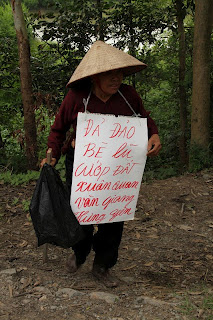 Đả Đảo
Bè lũ
Cướp Đất
xuân quan
văn giang
Hưng yên